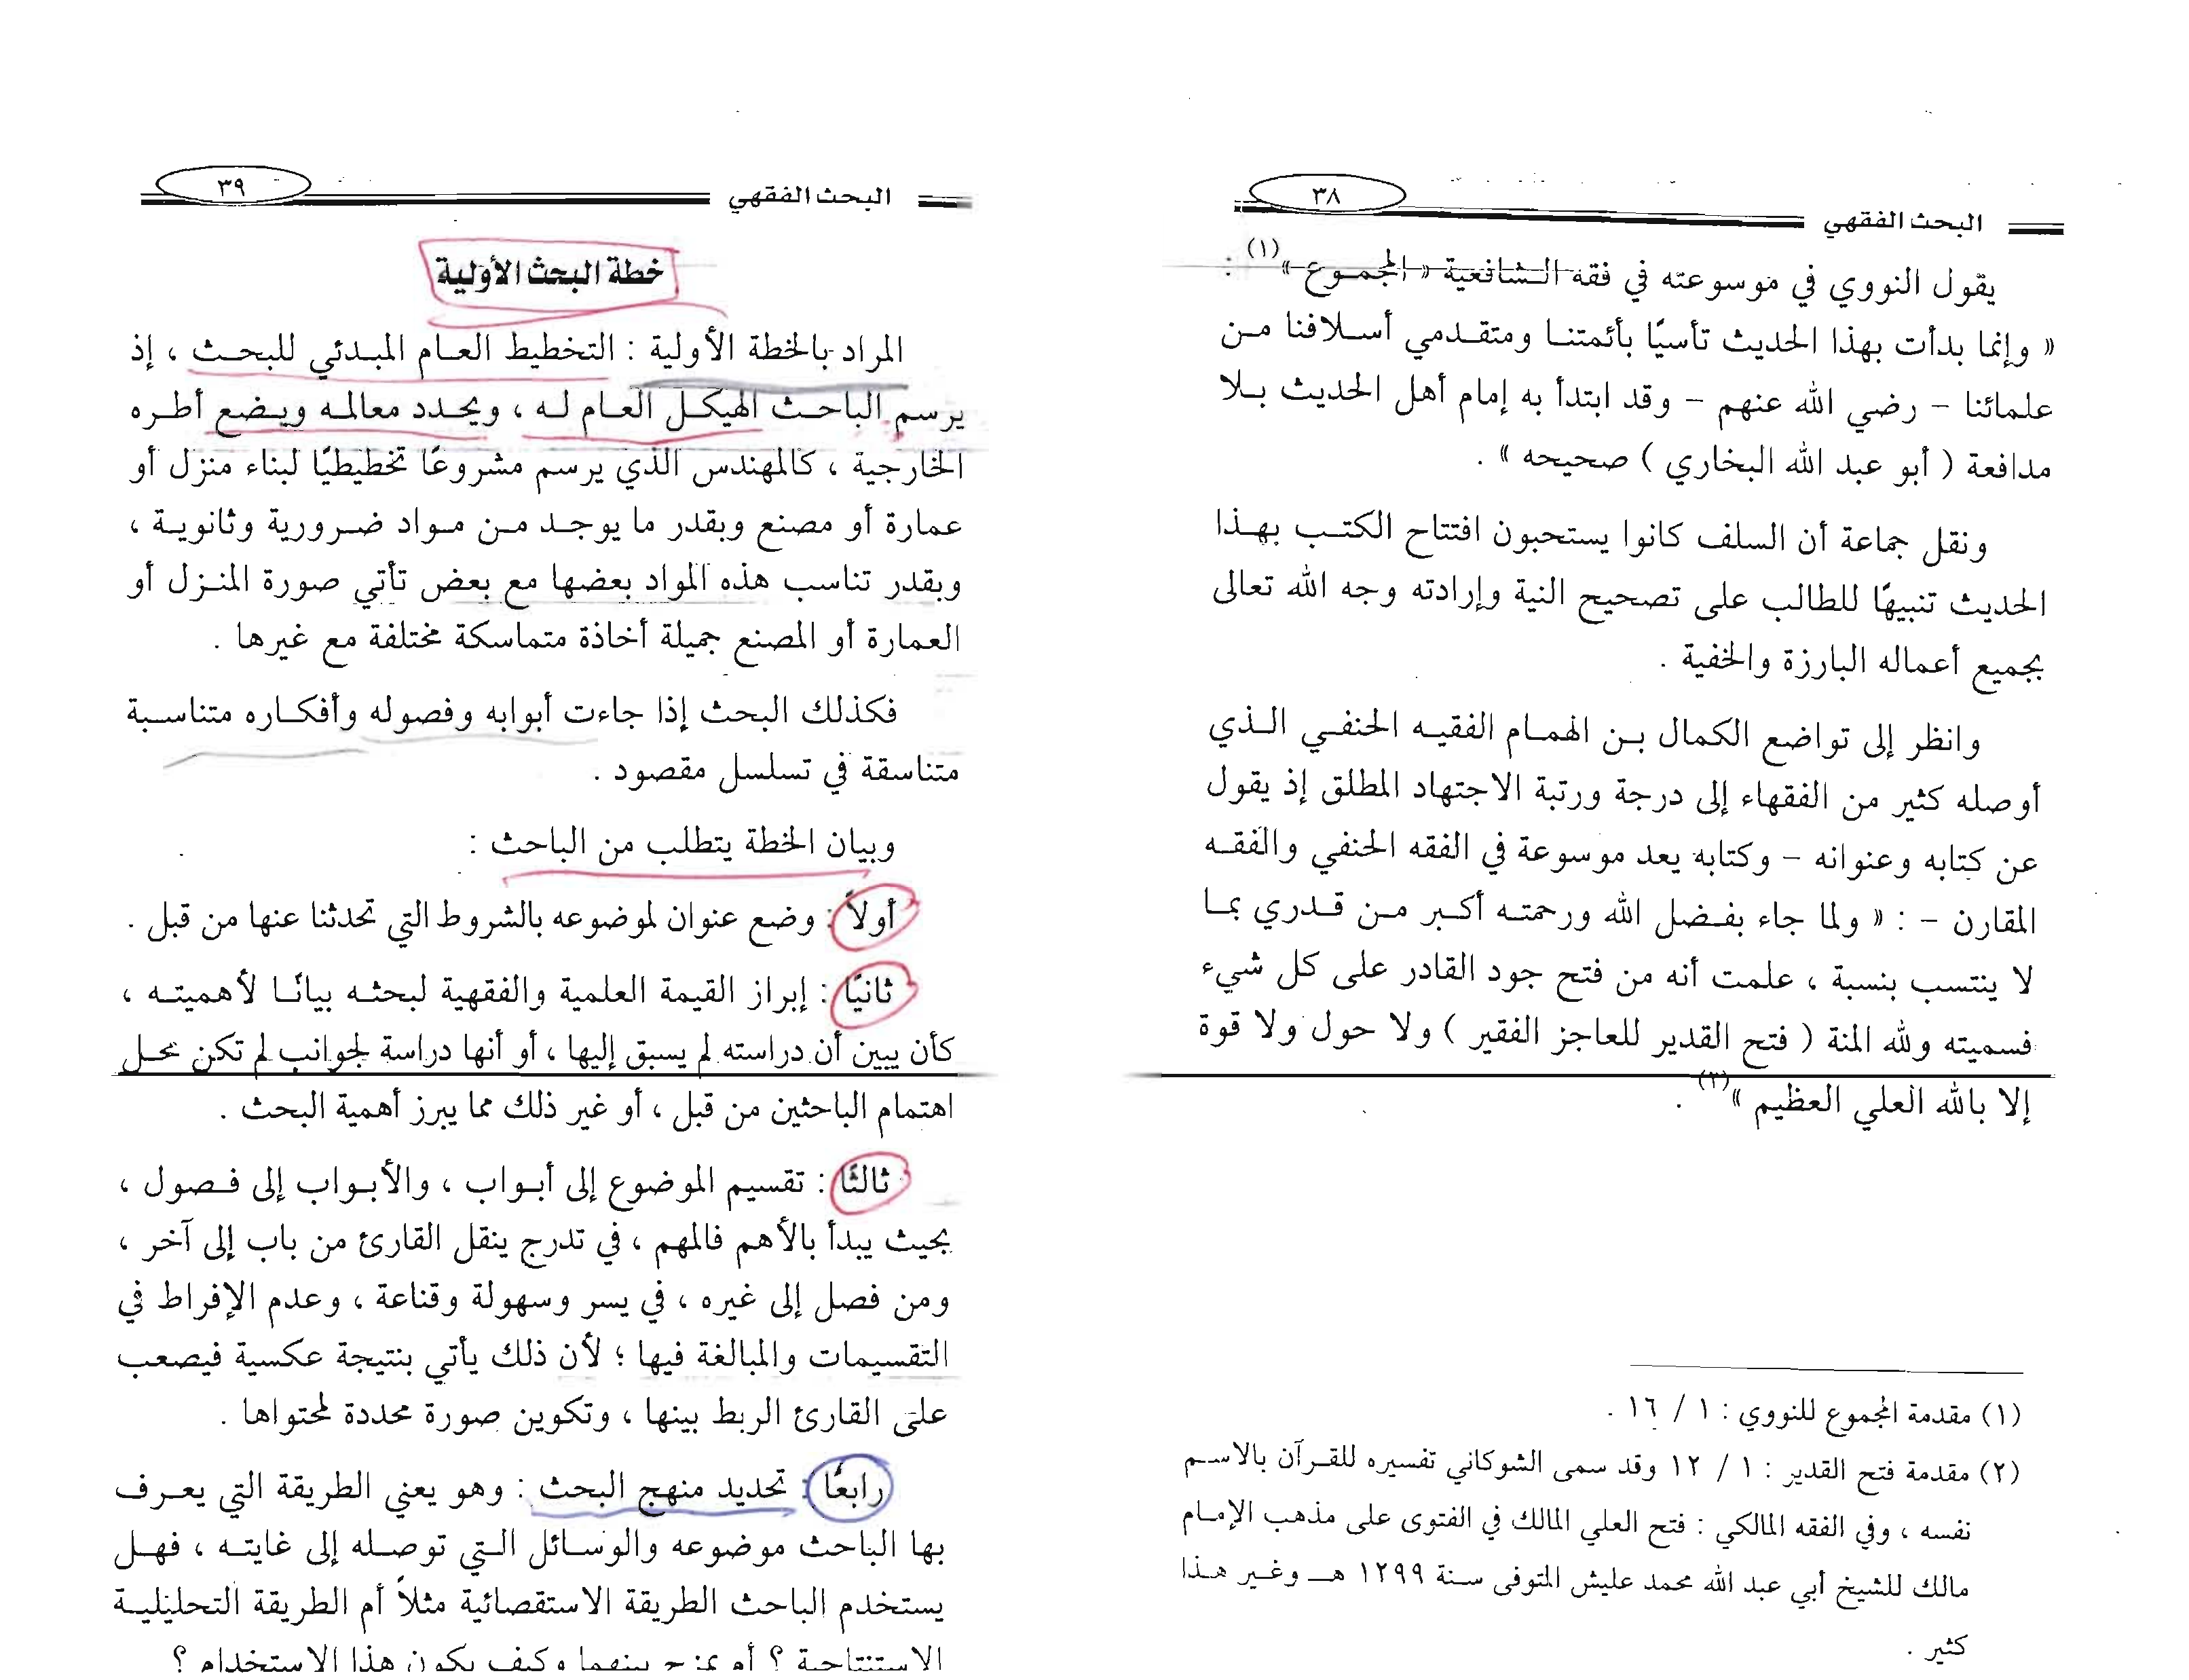 البحث الفقهي
٣٨
يقول النووي في موسوعته في فقه الشافعية « المجموع »(١) :
« وإنما بدأت بهذا الحديث تأسيًا بأئمتنا ومتقدمي أسلافنا من
علمائنا – رضي الله عنهم – وقد ابتدأ به إمام أهل الحديث بلا
مدافعة ( أبو عبد الله البخاري ) صحيحه » .
ونقل جماعة أن السلف كانوا يستحبون افتتاح الكتب بهذا
الحديث تنبيهًا للطالب على تصحيح النية وإرادته وجه الله تعالى
بجميع أعماله البارزة والخفية .
وانظر إلى تواضع الكمال بن الهمام الفقيه الحنفي الذي
أوصله كثير من الفقهاء إلى درجة ورتبة الاجتهاد المطلق إذ يقول
عن كتابه وعنوانه – وكتابه يعد موسوعة في الفقه الحنفي والفقه
المقارن – : « ولما جاء بفضل الله ورحمته أكبر من قدري بما
لا ينتسب بنسبة ، علمت أنه من فتح جود القادر على كل شيء
فسميته ولله المنة ( فتح القدير للعاجز الفقير ) ولا حول ولا قوة
إلا بالله العلي العظيم »(٢) .
(١) مقدمة المجموع للنووي : ١ / ١٦ .
(٢) مقدمة فتح القدير : ١ / ١٢ وقد سمى الشوكاني تفسيره للقرآن بالاسم
نفسه ، وفي الفقه المالكي : فتح العلي المالك في الفتوى على مذهب الإمام
مالك للشيخ أبي عبد الله محمد عليش المتوفى سنة ١٢٩٩ هـ وغير هذا
كثير .
البحث الفقهي
٣٩
خطة البحث الأولية
المراد بالخطة الأولية : التخطيط العام المبدئي للبحث ، إذ
يرسم الباحث الهيكل العام له ، ويحدد معالمه ويضع أطره
الخارجية ، كالمهندس الذي يرسم مشروعًا تخطيطيًا لبناء منزل أو
عمارة أو مصنع وبقدر ما يوجد من مواد ضرورية وثانوية ،
وبقدر تناسب هذه المواد بعضها مع بعض تأتي صورة المنزل أو
العمارة أو المصنع جميلة أخاذة متماسكة مختلفة مع غيرها .
فكذلك البحث إذا جاءت أبوابه وفصوله وأفكاره متناسبة
متناسقة في تسلسل مقصود .
وبيان الخطة يتطلب من الباحث :
أولاً : وضع عنوان لموضوعه بالشروط التي تحدثنا عنها من قبل .
ثانيًا : إبراز القيمة العلمية والفقهية لبحثه بيانًا لأهميته ،
كأن يبين أن دراسته لم يسبق إليها ، أو أنها دراسة لجوانب لم تكن محل
اهتمام الباحثين من قبل ، أو غير ذلك مما يبرز أهمية البحث .
ثالثًا : تقسيم الموضوع إلى أبواب ، والأبواب إلى فصول ،
بحيث يبدأ بالأهم فالمهم ، في تدرج ينقل القارئ من باب إلى آخر ،
ومن فصل إلى غيره ، في يسر وسهولة وقناعة ، وعدم الإفراط في
التقسيمات والمبالغة فيها ؛ لأن ذلك يأتي بنتيجة عكسية فيصعب
على القارئ الربط بينها ، وتكوين صورة محددة لمحتواها .
رابعًا : تحديد منهج البحث : وهو يعني الطريقة التي يعرف
بها الباحث موضوعه والوسائل التي توصله إلى غايته ، فهل
يستخدم الباحث الطريقة الاستقصائية مثلاً أم الطريقة التحليلية
الاستنتاجية ؟ أم يمزج بينهما وكيف يكون هذا الاستخدام ؟